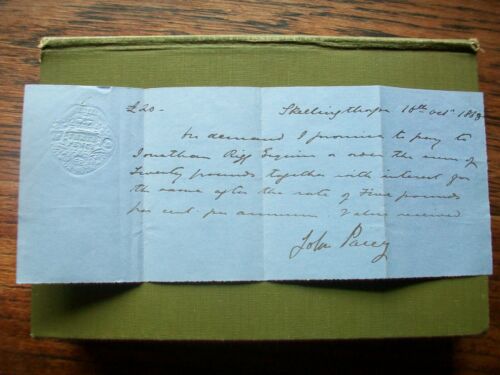 £20 - Skellingthorpe 16th Octr 186
On demand I promise to pay to
Jonathan Esquire or order the sum of
Twenty pounds together with interest for
the same after the rate of Five pounds
per cent per annum Value received
John Pacey